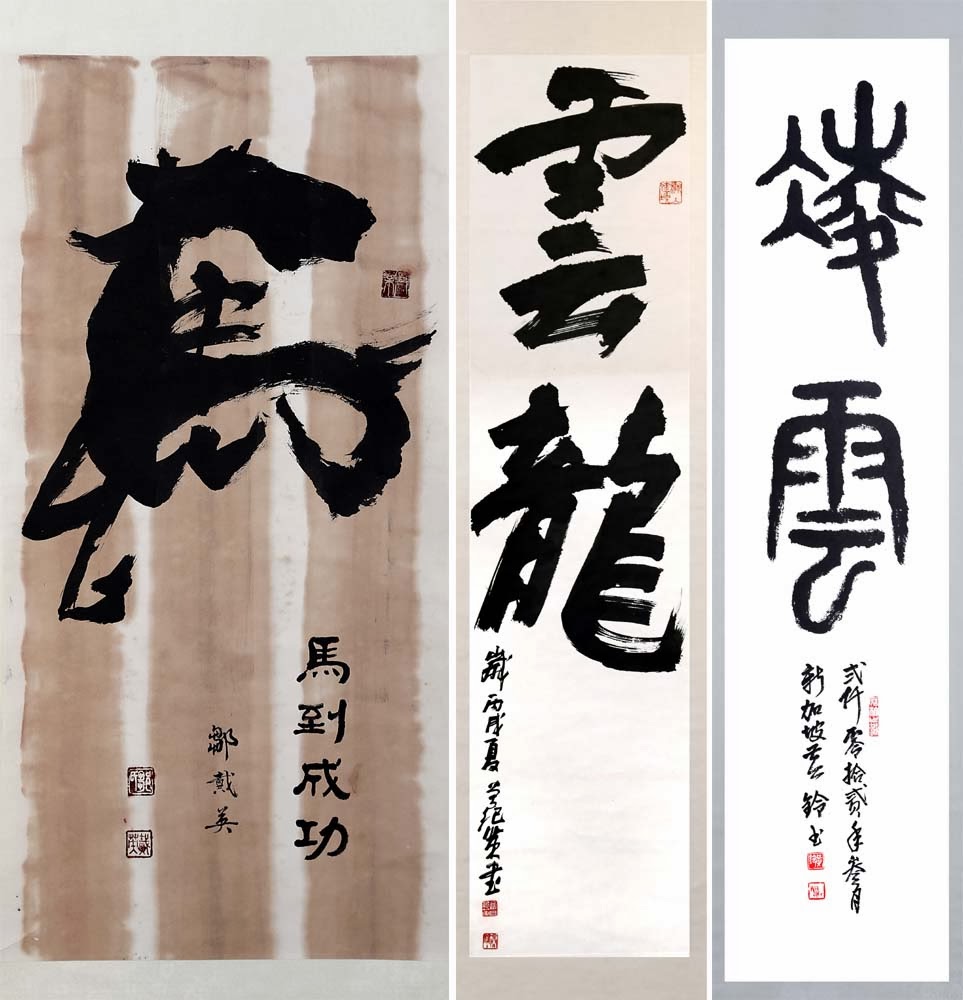 馬
馬到成功
鄒戴英
雲龍
歲丙戌夏 書
凌雲
弍仟零拾貳年叁月
新加坡 鈴書